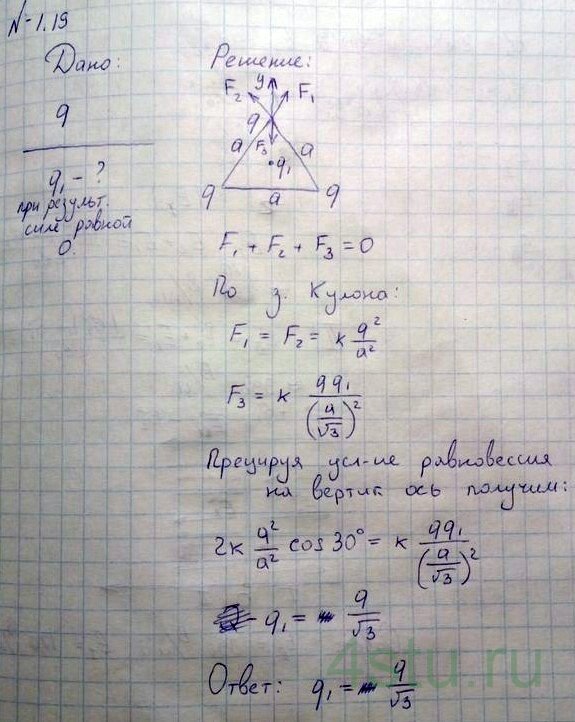 № 1.19
Дано:
q
q₁ - ?
при результ.
силе равной
0.
Решение:
F₂ y F₁
q
a F₃ a
q₁
q a q
F₁ + F₂ + F₃ = 0
По з. Кулона:
F₁ = F₂ = k q²/a²
F₃ = k qq₁/(a/√3)²
Прецируя усл-ие равновессия
на вертик ось получим:
2k q²/a² cos 30° = k qq₁/(a/√3)²
q₁ = q/√3
Ответ: q₁ = q/√3
4stu.ru